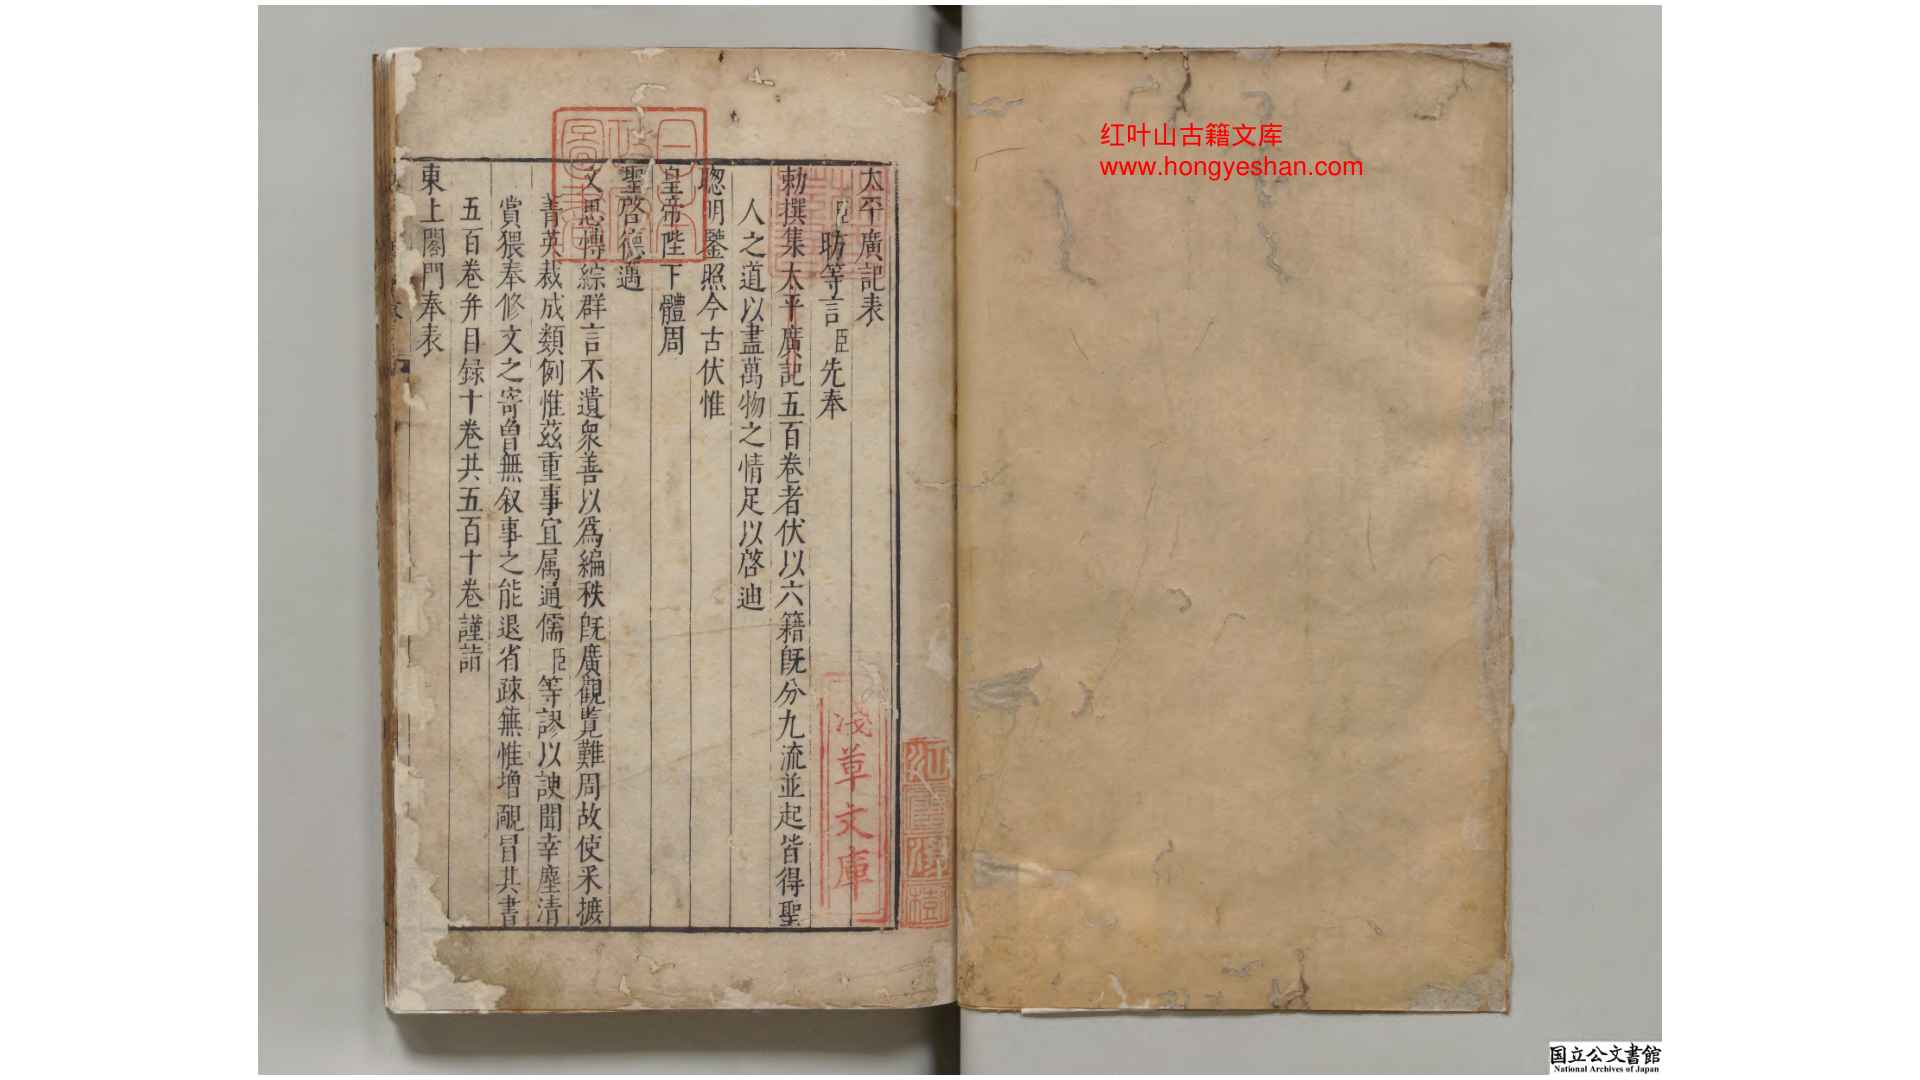 太平廣記表
臣昉等言臣先奉
勅撰集太平廣記五百卷者伏以六籍旣分九流並起皆得聖
人之道以盡萬物之情足以啓迪
聰明鑒照今古伏惟
皇帝陛下體周
聖啓德邁
文思博綜群言不遺衆善以爲編秩旣廣觀覽難周故使采摭
菁英裁成類例惟茲重事宜属通儒臣等謬以諛聞幸塵清
賞猥奉修文之寄曾無叙事之能退省疎蕪惟增靦冒其書
五百卷并目録十卷共五百十卷謹詣
東上閤門奉表
日本
政府
圖書
淺草文庫
红叶山古籍文库
www.hongyeshan.com
国立公文書館
National Archives of Japan